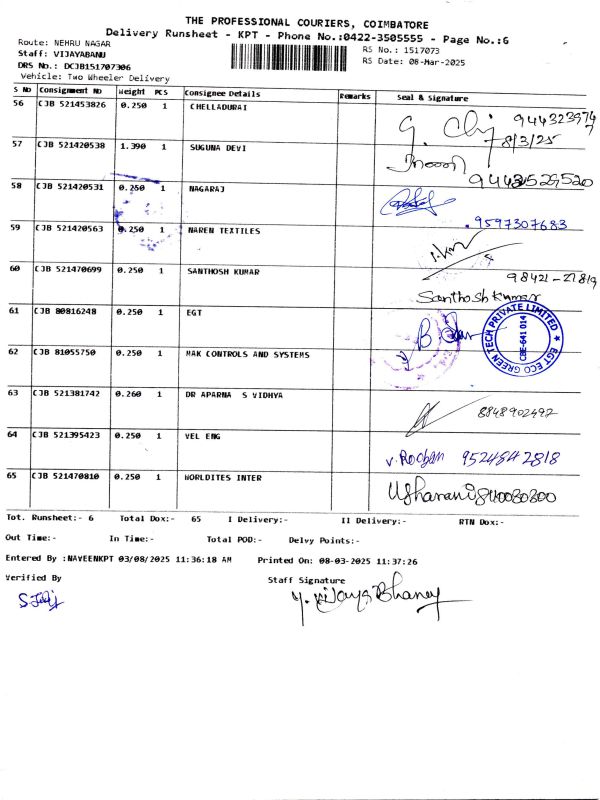 THE PROFESSIONAL COURIERS, COIMBATORE
Delivery Runsheet - KPT - Phone No.:0422-3505555 - Page No.:6
Route: NEHRU NAGAR
RS No.: 1517073
Staff: VIJAYABANU
RS Date: 08-Mar-2025
DRS No.: DCJB151707306
Vehicle: Two Wheeler Delivery
S No Consignment No Weight PCS Consignee Details Remarks Seal & Signature
56 CJB 521453826 0.250 1 CHELLADURAI
8/3/25
57 CJB 521420538 1.390 1 SUGUNA DEVI
58 CJB 521420531 0.250 1 NAGARAJ
9597307683
59 CJB 521420563 0.250 1 NAREN TEXTILES
60 CJB 521470699 0.250 1 SANTHOSH KUMAR
98421-27819
Santhosh Kumar
61 CJB 80816248 0.250 1 EGT
EGT ECO GREEN TECH PRIVATE LIMITED
CBE-641 014
62 CJB 81055750 0.250 1 MAK CONTROLS AND SYSTEMS
63 CJB 521381742 0.260 1 DR APARNA S VIDHYA
8848902497
64 CJB 521395423 0.250 1 VEL ENG
65 CJB 521470810 0.250 1 WORLDITES INTER
Tot. Runsheet:- 6 Total Dox:- 65 I Delivery:- II Delivery:- RTN Dox:-
Out Time:- In Time:- Total POD:- Delvy Points:-
Entered By :NAVEENKPT 03/08/2025 11:36:18 AM Printed On: 08-03-2025 11:37:26
Verified By Staff Signature